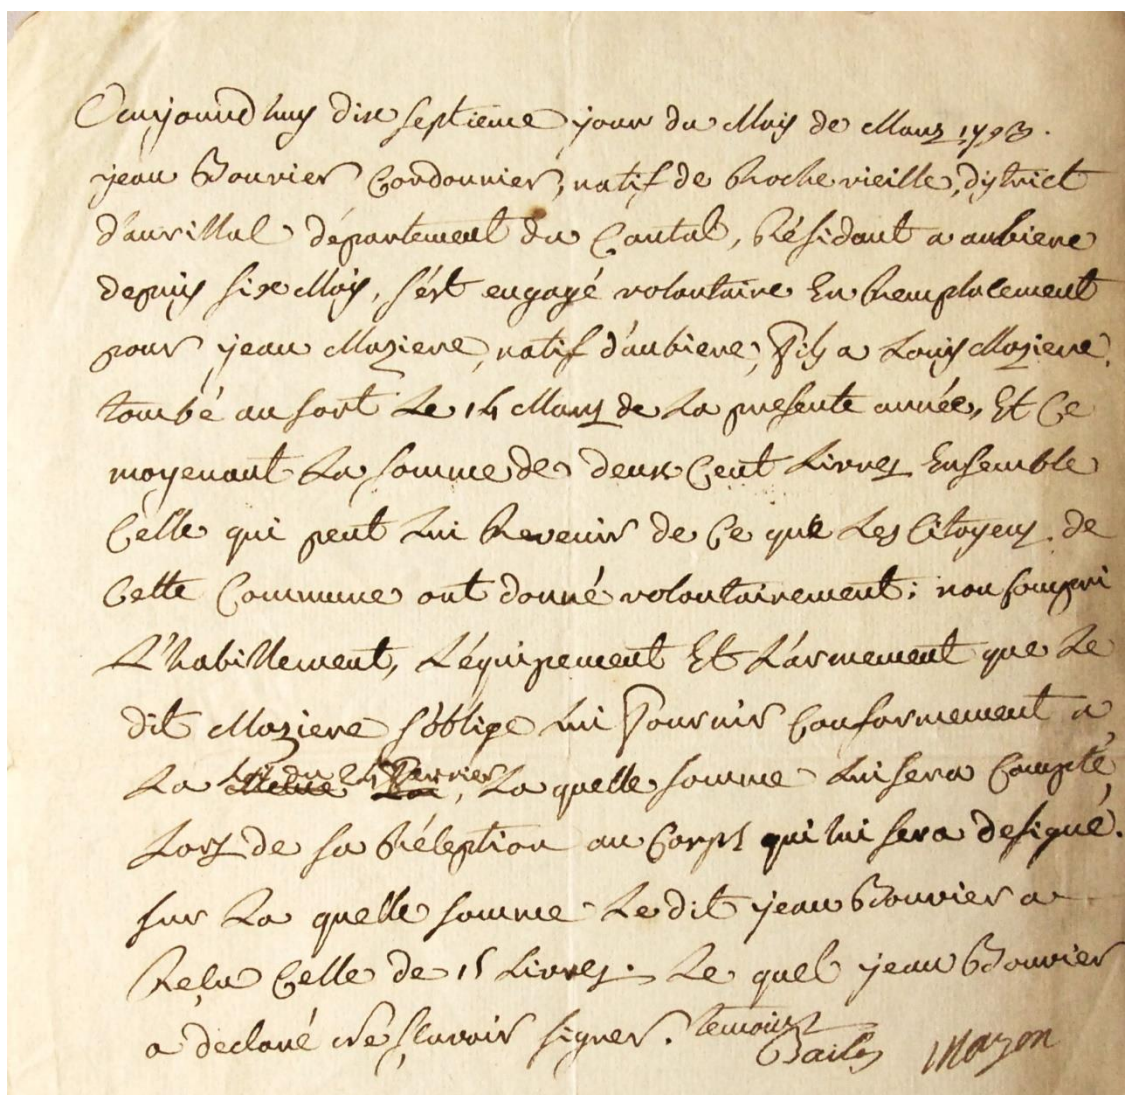 Aujourd'huy dix septième jour du Mois de Mars 1793.
jean Bouvier Cordonnier, natif de Roche vieille, district
d'aurillac département du Cantal, Résidant a aubiere
depuis six Mois, s'ést engagé volontaire En Remplacement
pour jean Maziere, natif d'aubiere, fils a Louis Maziere,
tombé au sort Le 14 Mars de La presente année, Et Ce
moyenant La somme de deux Cent Livres Ensemble
Celle qui peut Lui Revenir de Ce que Les Citoyens de
Cette Commune ont donné volontairement; non compri
L'habillement, L'équipement Et L'armement que Le
dit Maziere s'oblige Lui fournir Conformement a
La Loi du 24 fevrier, La quelle somme Lui sera Compté,
Lors de sa Réception au Corps qui lui sera designé.
sur La quelle somme Le dit jean Bouvier a
Reçu Celle de 15 Livres. Le quel jean Bouvier
a declaré ne sçavoir signer. temoins
Mazon